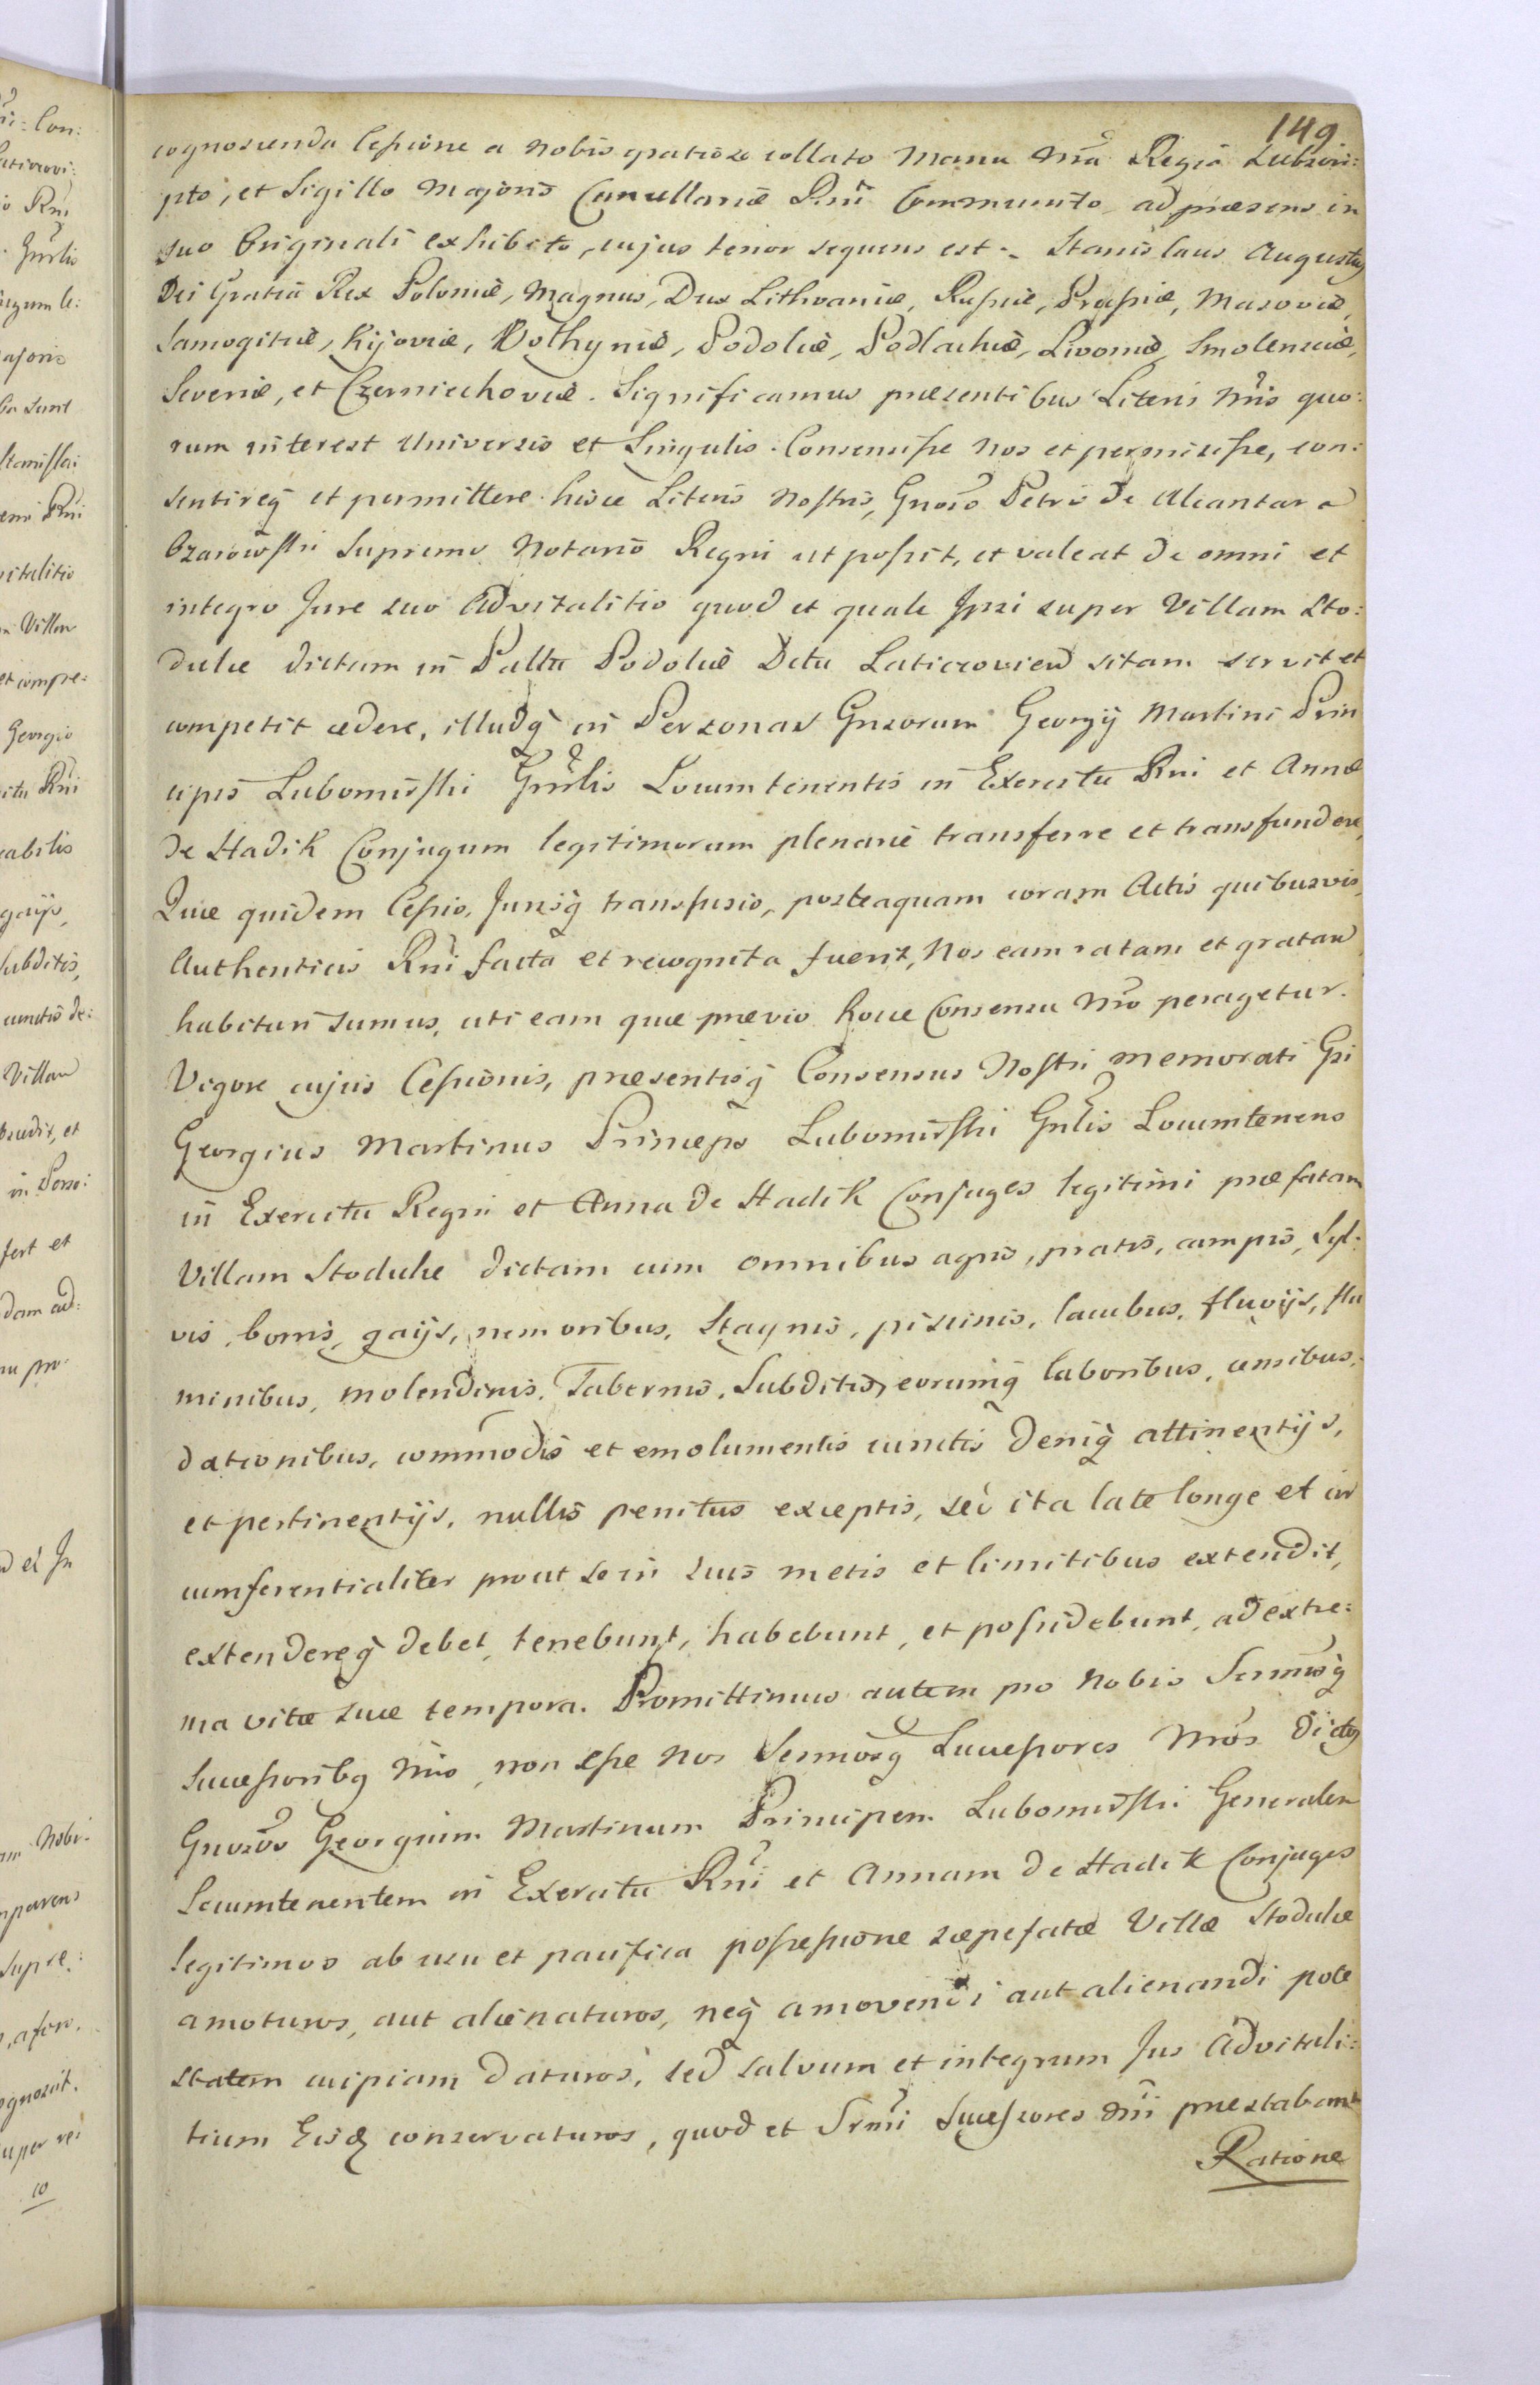 149
cognoscenda Cessione a Nobis gratiose collato Manu Nra Regia Subscri:
pto, et Sigillo Majoris Cancellariæ Rni Communito ad præsens in
suo Originali exhibito, cujus tenor sequens est. Stanislaus Augustus
Dei Gratia Rex Poloniæ, Magnus Dux Lithvaniæ, Russiæ, Prussiæ, Masoviæ,
Samogitiæ, Kijoviæ, Volhyniæ, Podoliæ, Podlachiæ, Livoniæ, Smolensciæ,
Severiæ, et Czerniechoviæ. Significamus præsentibus Literis Nris quo:
rum interest Universis et Singulis. Consensisse Nos et permisisse, con:
sentireq et permittere hisce Literis Nostris, Gnoso Petro de Alcantara
Ożarowski Supremo Notario Regni ut possit, et valeat de omni et
integro Jure suo Advitalitio quod et quale Ipsi super Villam Sto:
dulce dictam in Palltu Podoliæ Dctu Laticzovien sitam servit et
competit cedere, illudq in Personas Gnsorum Georgij Martini Prin
cipis Lubomirski Gnrlis Locumtenentis in Exercitu Rni et Annæ
de Hadik Conjugum legitimorum plenarie transferre et transfundere,
Quæ quidem Cessio, Jurisq transfusio, posteaquam coram Actis quibusvis,
Authenticis Rni facta et recognita fuerit, Nos eam ratam et gratam
habituri sumus, uti eam quæ prævio hocce Consensu Nro peragetur.
Vigore cujus Cessionis, præsentisq Consensus Nostri memorati Gsi
Georgius Martinus Princeps Lubomirski Gnlis Locumtenens
in Exercitu Regni et Anna de Hadik Conjuges legitimi præfatam
Villam Stodulce dictam cum omnibus agris, pratis, campis, Syl:
vis, borris, gaijs, nemoribus, Stagnis, piscinis, lacubus, fluvijs, flu
minibus, molendinis, Tabernis, Subditis, eorumq laboribus, censibus,
dationibus, commodis et emolumentis cunctis deniq attinentijs,
et pertinentijs, nullis penitus exceptis, sed ita late longe et cir
cumferentialiter prout se in suis metis et limitibus extendit,
extendereq debet, tenebunt, habebunt, et possidebunt, ad extre:
ma vitæ suæ tempora. Promittimus autem pro Nobis Sernmisq
Successoribq Nris, non esse Nos Sernmosq Successores Nros dictos
Gnosos Georgium Martinum Principem Lubomirski Generalem
Locumtenentem in Exercitu Rni et Annam de Hadik Conjuges
legitimos ab usu et pacifica possessione sæpefatæ Villæ Stodulce
amoturos, aut alienaturos, neq amovendi aut alienandi pote
statem cuipiam daturos, sed salvum et integrum Jus Advitali:
tium Eisd conservaturos, quod et Srmi Successores Nri præstabunt
Ratione